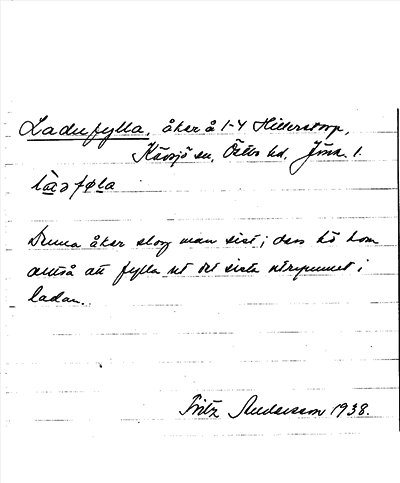 Ladufylla, åker å 1-4 Hillerstorp,
Kävsjö sn, Östbo hd, Jönk. l.
ladfyla
Denna åker slog man sist; dess hö kom
också att fylla ut det sista utrymmet i
ladan.
Fritz Andersson 1938.